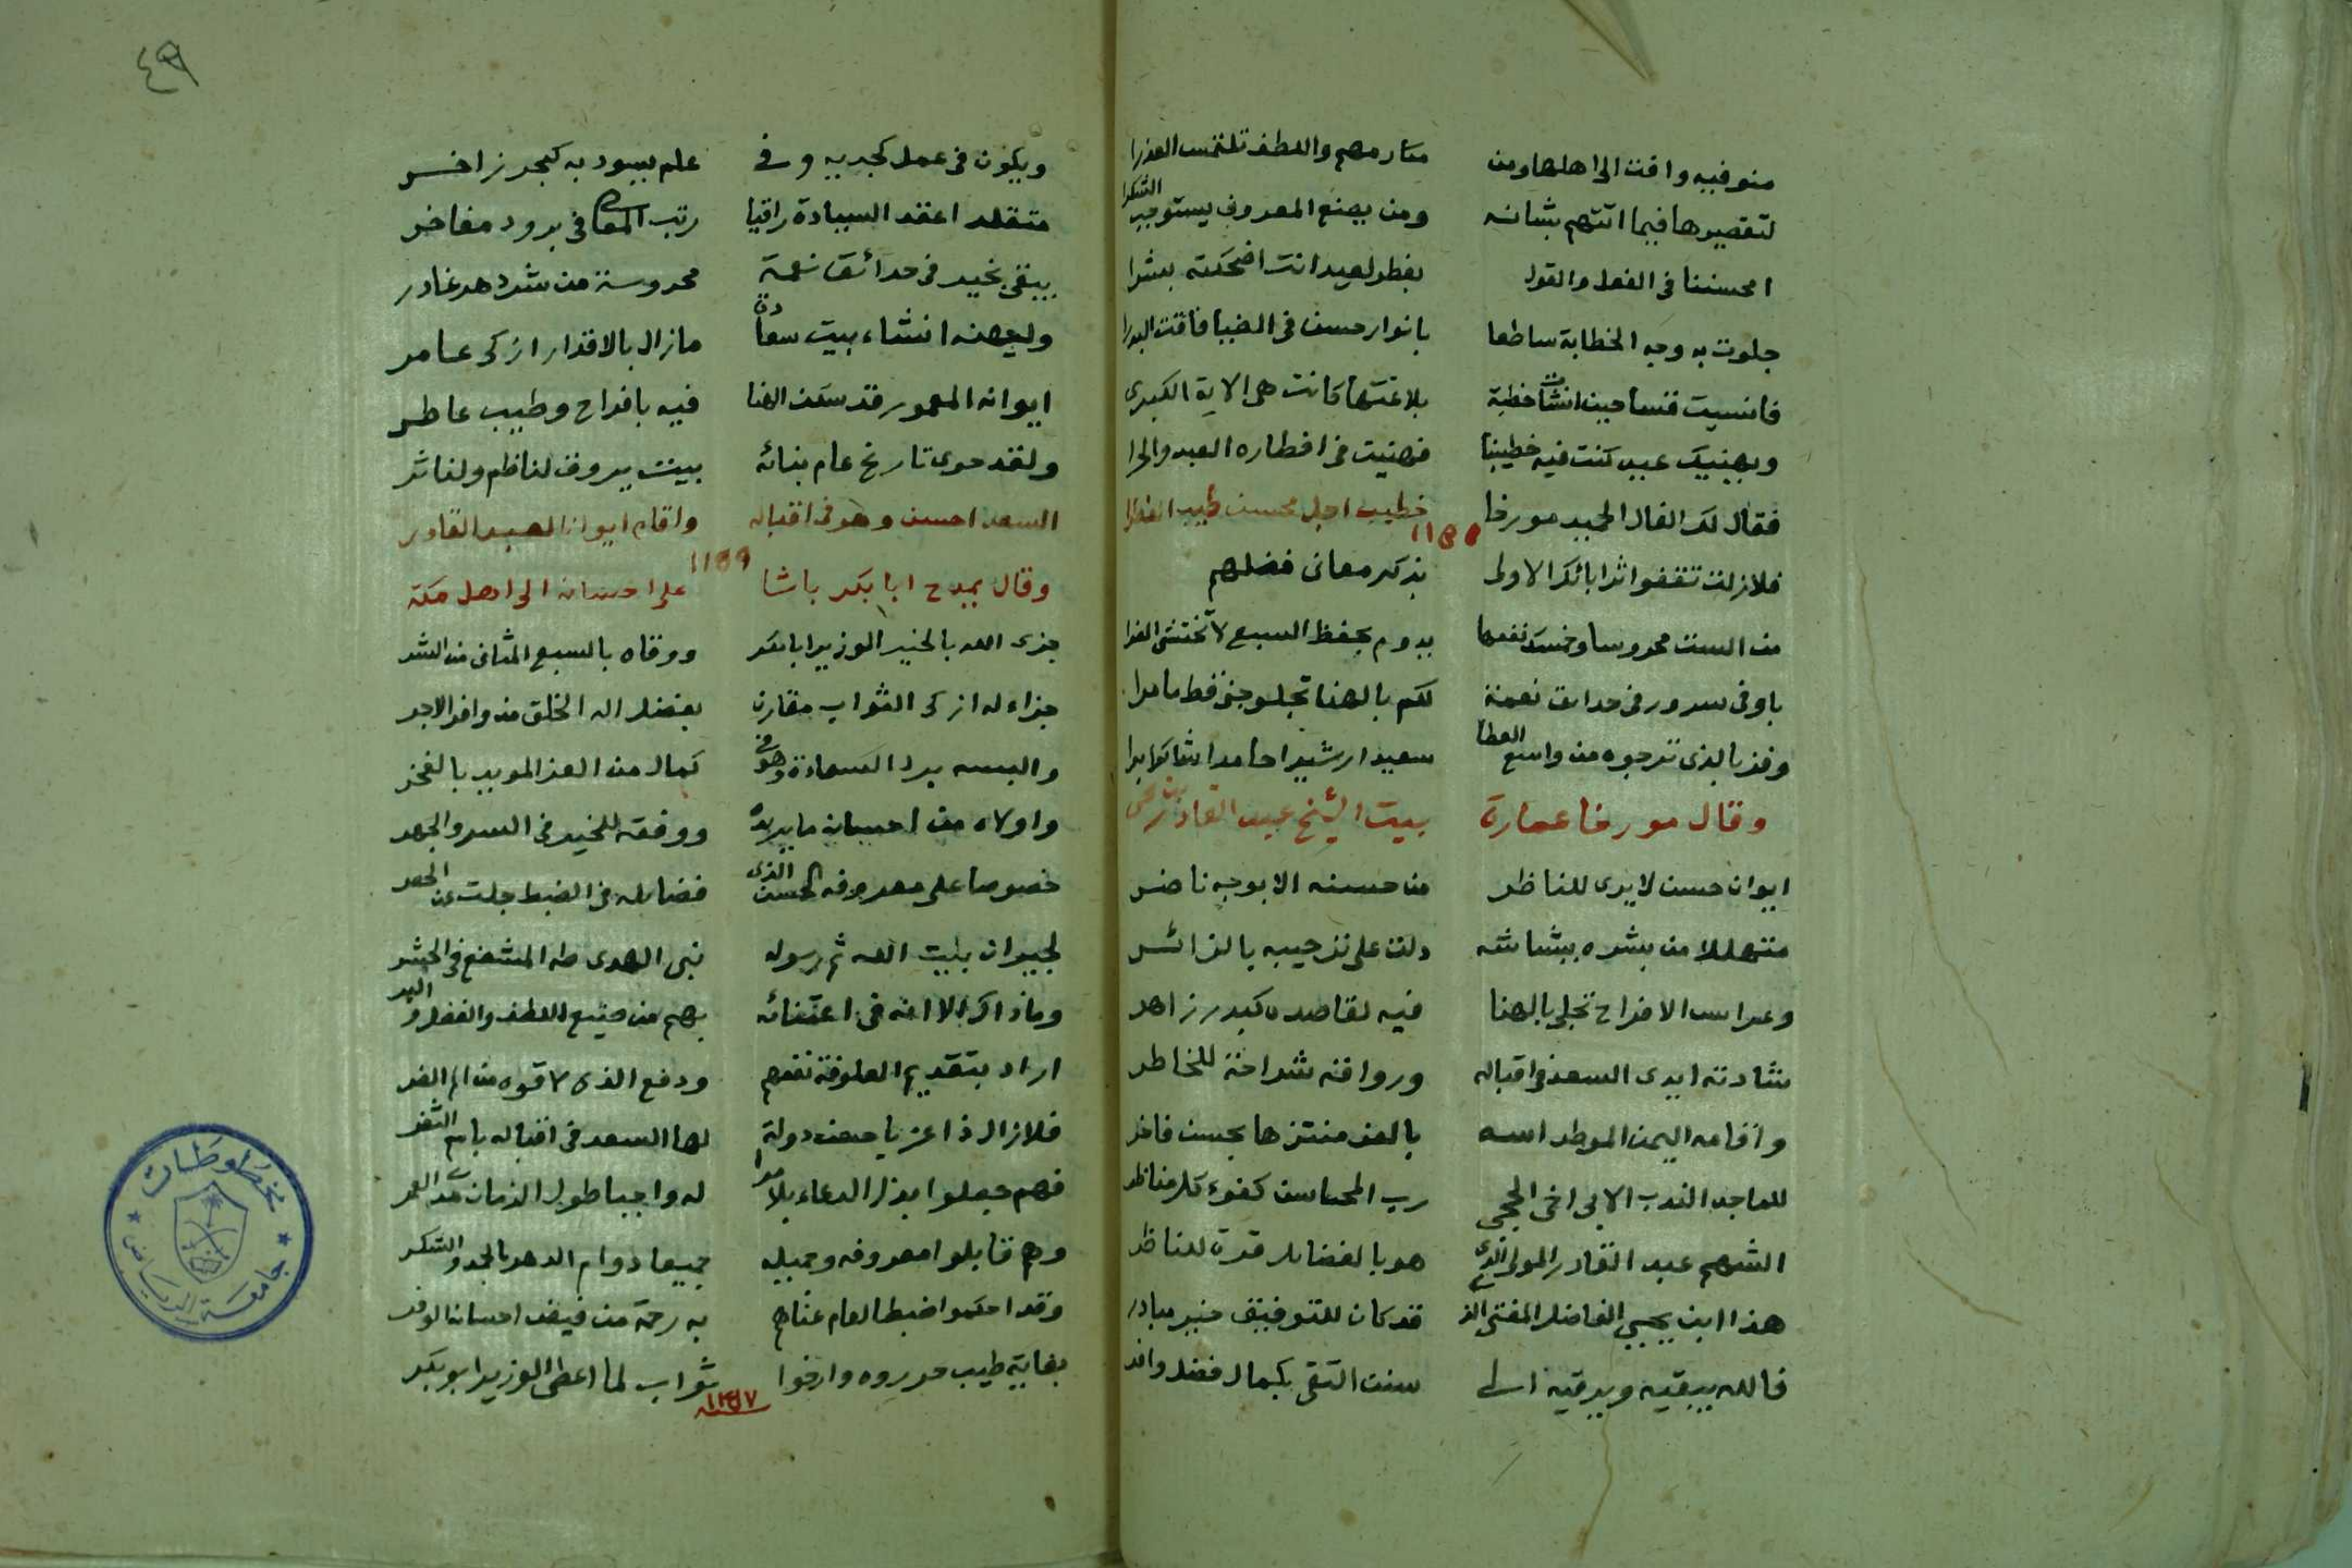 منوفيه وافت الى اهلها ومن مكارمهم واللطف تلتمس العذرا
لتقصيرها فيما اتتهم بشانه ومن يصنع المعروف يستوجب الشكرا
امحسننا فى الفعل والقول بفطر لعيد انت اضحكته بشرا
جلوت به وجه الخطابة ساطعا بانوار حسن فى الضيا فاقت البدرا
فانسيت قسا حين انشات خطبة بلاغتها كانت هى الاية الكبرى
ويهنيك عيد كنت فيه خطيبنا فهنيت فى افطاره العيد والى
فقال لك الفال المجيد مورخا خطيب اجل محسن طيب الفطرا
١١٥٥
فلازلت تقفوا اثر ابائك الاولى بذكر معانى فضلهم
من الست محروسا وخمسك نفعها يدوم بحفظ السبع لا تختشى الضرا
باوفى سرور فى حدايق نعمة لكم بالهنا تجلو جنى قط ما مرا
وفز بالذى ترجوه من واسع العطا سعيدا رشيدا حامدا شاكرا برا
وقال مورخا عمارة بيت الشيخ عبد القادر بن يحيى
ايوان حسن لا يرى للناظر من حسنه الا بوجه ناضر
متهللا من بشره ببشاشة دلت على ترحيبه بالزائر
وعرايس الافراح تجلى بالهنا فيه لقاصده كبدر زاهر
شادته ايدى السعد فى اقباله ورواقه شراحة للخاطر
واقامه اليمن الموطد اسه بالعز منتزها بحسن فاخر
للماجد الندب الابى اخى الحجى رب المحاسن كفوء كل مناظر
الشهم عبد القادر المولى الذى هو بالفضايل قرة للناظر
هذا ابن يحيى الفاضل المفتى الذى قد كان للتوفيق خير مبادر
فالله يبقيه ويرقيه الى سنن التقى بكمال فضل وافر
٤٩
ويكون فى عمل كجديه وفى علم يسود به كبحر زاخر
متقلدا عقد السيادة راقيا رتب المعالى فى برود مفاخر
يبقى بخير فى حدائق نعمة محروسة من شر دهر غادر
وليهنه انشاء بيت سعادة مازال بالاقدار ازكى عامر
ايوانه المعمور قد سكن الهنا فيه بافراح وطيب عاطر
ولقد حوى تاريخ عام بنائه بيت يروق لناظم ولناثر
السعد احسن وهو فى اقباله واقام ايوانا لعبد القادر
١١٥٩
وقال يمدح ابا بكر باشا على احسانه الى اهل مكة
جزى الله بالخير الوزير ابا بكر ووقاه بالسبع المثانى من الشر
جزاء له ازكى الثواب مقارن بفضل اله الخلق من وافر الاجر
والبسه برد السعادة وهو فى كمال من العز المويد بالفخر
واولاه من احسانه ما يريده ووفقه للخير فى السر والجهر
خصوصا على معروفه الحسن الذى فضايله فى الضبط جلت عن الحصر
لجيران بيت الله ثم رسوله نبى الهدى طه المشفع فى الحشر
وماذاك الا انه فى اعتنائه بهم من صنيع اللطف والفضل والبر
اراد بتقديم العلوفة نفعهم ودفع الذى لاقوه من الم الضر
فلازال ذا عز يا حسن دولة لها السعد فى اقباله باسم الثغر
فهم جعلوا بذل الدعاء بلا مرا له واجبا طول الزمان مدى العمر
وهم قابلوا معروفه وجميله جميعا دوام الدهر بالحمد والشكر
وقد احكموا ضبطا لعام غناهم به رحمة من فيض احسانه الوفر
بغاية طيب حرروه وارخوا ثواب لما اعطى الوزير ابو بكر
سنة
مخطوطات
جامعة الرياض